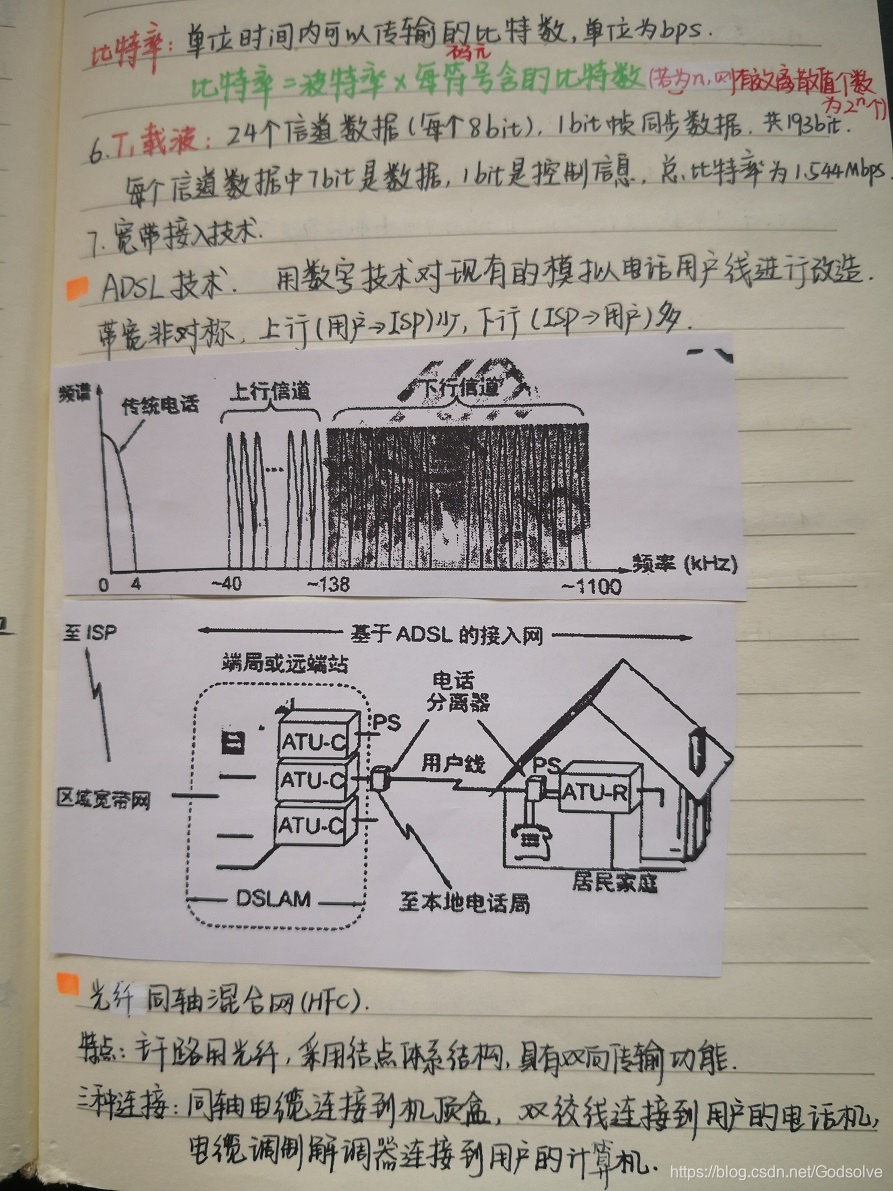 比特率：单位时间内可以传输的比特数,单位为bps.
码元
比特率=波特率×每符号含的比特数(若为n,则有效离散值个数
为2ⁿ个)
6.T₁载波：24个信道数据(每个8bit),1bit帧同步数据.共193bit.
每个信道数据中7bit是数据,1bit是控制信息,总比特率为1.544Mbps.
7.宽带接入技术.
ADSL技术. 用数字技术对现有的模拟电话用户线进行改造.
带宽非对称,上行(用户→ISP)少,下行(ISP→用户)多.
频谱 传统电话 上行信道 下行信道
0 4 ~40 ~138 ~1100 频率 (kHz)
至 ISP 基于 ADSL 的接入网
端局或远端站
电话
分离器
ATU-C PS
ATU-C 用户线 PS ATU-R
ATU-C
区域宽带网
DSLAM 至本地电话局 居民家庭
光纤同轴混合网(HFC).
特点：主干路用光纤,采用结点体系结构,具有双向传输功能.
三种连接：同轴电缆连接到机顶盒,双绞线连接到用户的电话机,
电缆调制解调器连接到用户的计算机.
https://blog.csdn.net/Godsolve